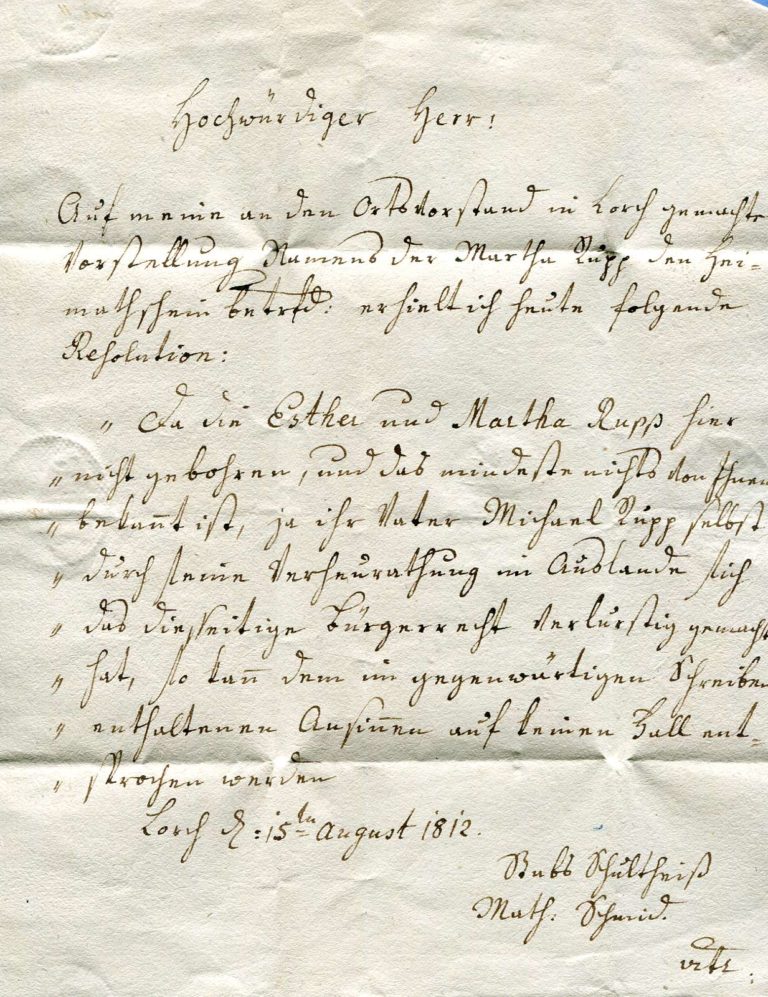 Hochwürdiger Herr!
Auf meine an den Ortsvorstand in Lorch gemachte
Vorstellung Namens der Martha Rupp den Hei-
mathschein betrfd: erhielt ich heute folgende
Resolution:
„ Da die Esther und Martha Rupp hier
„ nicht gebohren, und das mindeste nichts von Ihnen
„ bekannt ist, ja ihr Vater Michael Rupp selbst
„ durch seine Verheurathung im Auslande sich
„ das diesseitige Bürgerrecht verlurstig gemacht
„ hat, so kan̄ dem im gegenwärtigen Schreiben
„ enthaltenen Ansin̄en auf keinen Fall ent-
„ sprochen werden
Lorch d: 15ten August 1812.
Stabs Schultheiß
Math: Schmid.